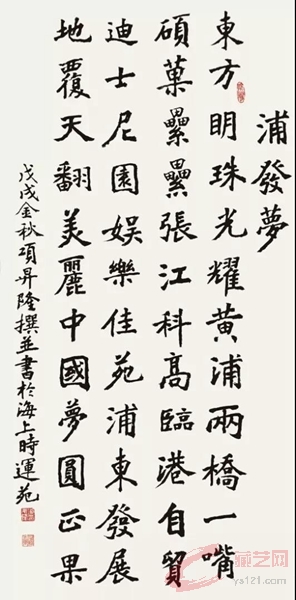 浦發夢
東方明珠光耀黃浦兩橋一嘴
碩菓纍纍張江科高臨港自貿
迪士尼園娛樂佳苑浦東發展
地覆天翻美麗中國夢圓正果
戊戌金秋項昇隆撰並書於海上時運苑
藏艺网
ys121.com